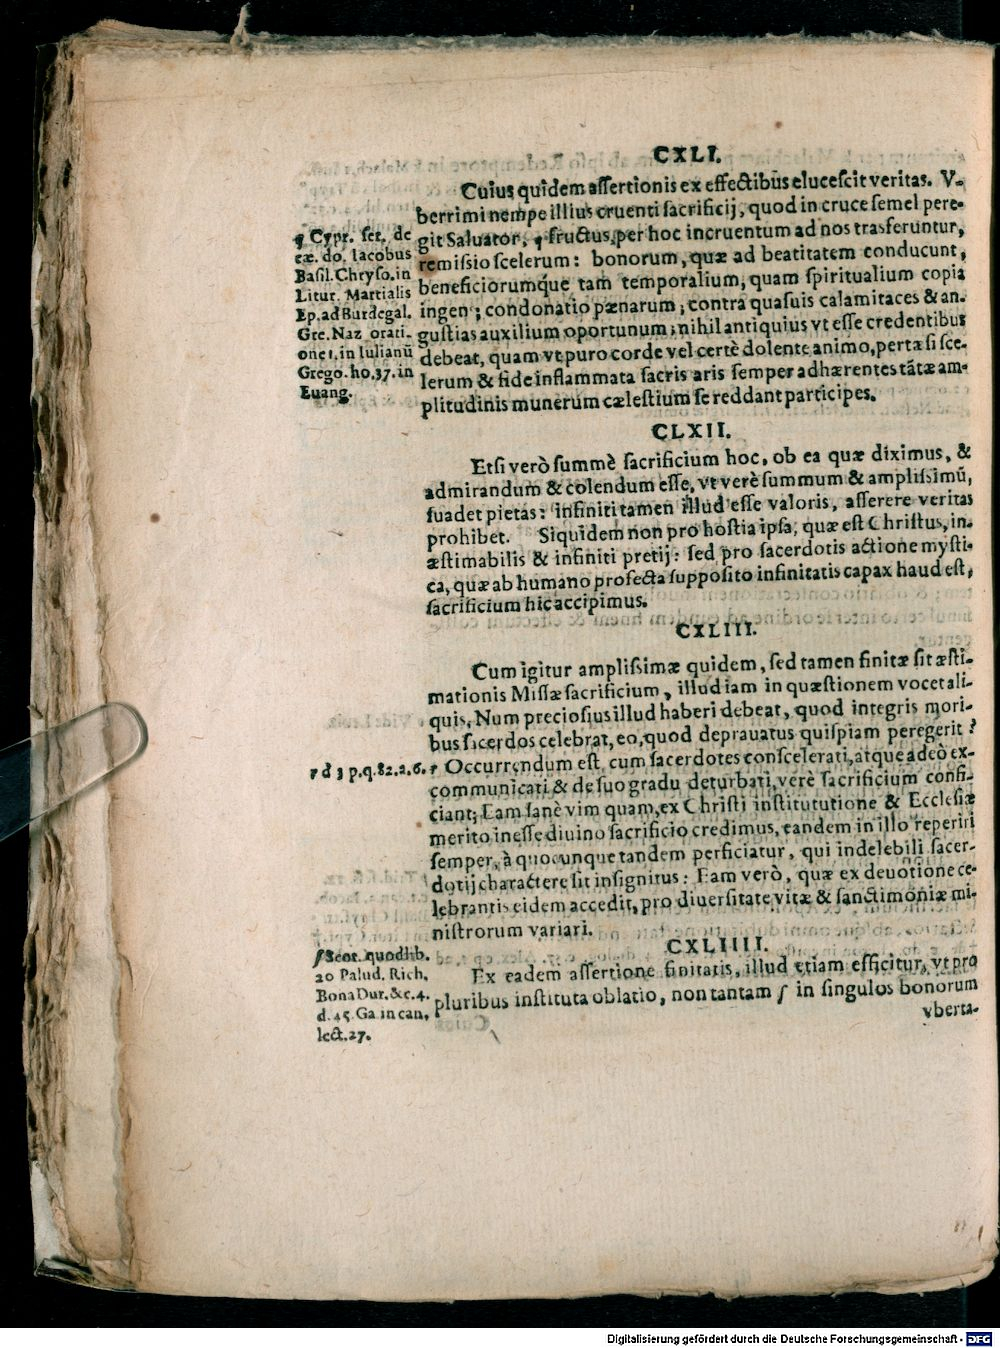 CXLI.
Cuius quidem aſſertionis ex effectibus eluceſcit veritas. V-
berrimi nempe illius cruenti ſacrificij, quod in cruce ſemel pere-
git Saluator, q fructus per hoc incruentum ad nos trãsferuntur,
remiſsio ſcelerum: bonorum, quæ ad beatitatem conducunt,
beneficiorumq́ue tam temporalium, quam ſpiritualium copia
ingens; condonatio pænarum; contra quaſuis calamitates & an-
guſtias auxilium oportunum; nihil antiquius vt eſſe credentibus
debeat, quam vt puro corde vel certè dolente animo, pertæſi ſce-
lerum & fide inflammata ſacris aris ſemper adhærentes tãtæ am-
plitudinis munerum cæleſtium ſe reddant participes.
q Cypr. ſer. de
cæ. do. Iacobus
Baſil. Chryſo. in
Litur. Martialis
Ep. ad Burdegal.
Gre. Naz orati-
one 1. in Iulianũ
Grego. ho. 37. in
Euang.
CLXII.
Etſi verò ſummè ſacrificium hoc, ob ea quæ diximus, &
admirandum & colendum eſſe, vt verè ſummum & ampliſsimũ,
ſuadet pietas: infiniti tamen illud eſſe valoris, aſſerere veritas
prohibet. Siquidem non pro hoſtia ipſa, quæ eſt Chriſtus, in-
æſtimabilis & infiniti pretij: ſed pro ſacerdotis actione myſti-
ca, quæ ab humano profecta ſuppoſito infinitatis capax haud eſt,
ſacrificium hic accipimus.
CXLIII.
Cum igitur ampliſsimæ quidem, ſed tamen finitæ ſit æſti-
mationis Miſſæ ſacrificium, illud iam in quæſtionem vocet ali-
quis, Num precioſius illud haberi debeat, quod integris mori-
bus ſacerdos celebrat, eo, quod deprauatus quiſpiam peregerit?
r Occurrendum eſt, cum ſacerdotes conſcelerati, atque adeò ex-
communicati & de ſuo gradu deturbati, verè ſacrificium confi-
ciant; Eam ſanè vim quam, ex Chriſti inſtitututione & Eccleſiæ
merito ineſſe diuino ſacrificio credimus, eandem in illo reperiri
ſemper, à quocunque tandem perficiatur, qui indelebili ſacer-
dotij charactere ſit inſignitus: Eam verò, quæ ex deuotione ce-
lebrantis eidem accedit, pro diuerſitate vitæ & ſanctimoniæ mi-
niſtrorum variari.
r d 3 p. q. 82. a. 6.
CXLIIII.
Ex eadem aſſertione finitatis, illud etiam efficitur, vt pro
pluribus inſtituta oblatio, non tantam ſ in ſingulos bonorum
vberta-
ſ Scot. quodlib.
20 Palud. Rich.
Bona Dur. &c. 4.
d. 45. Ga in can.
lect. 27.
Digitalisierung gefördert durch die Deutsche Forschungsgemeinschaft - DFG